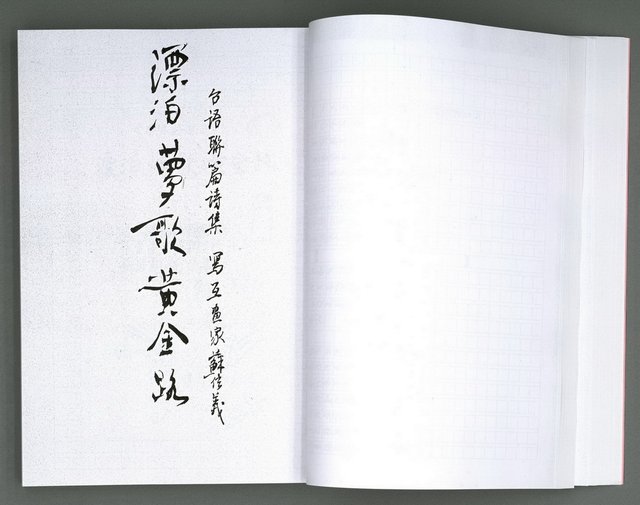 台語聯篇詩集 寫互畫家蘇信義
漂泊夢歌黃金路